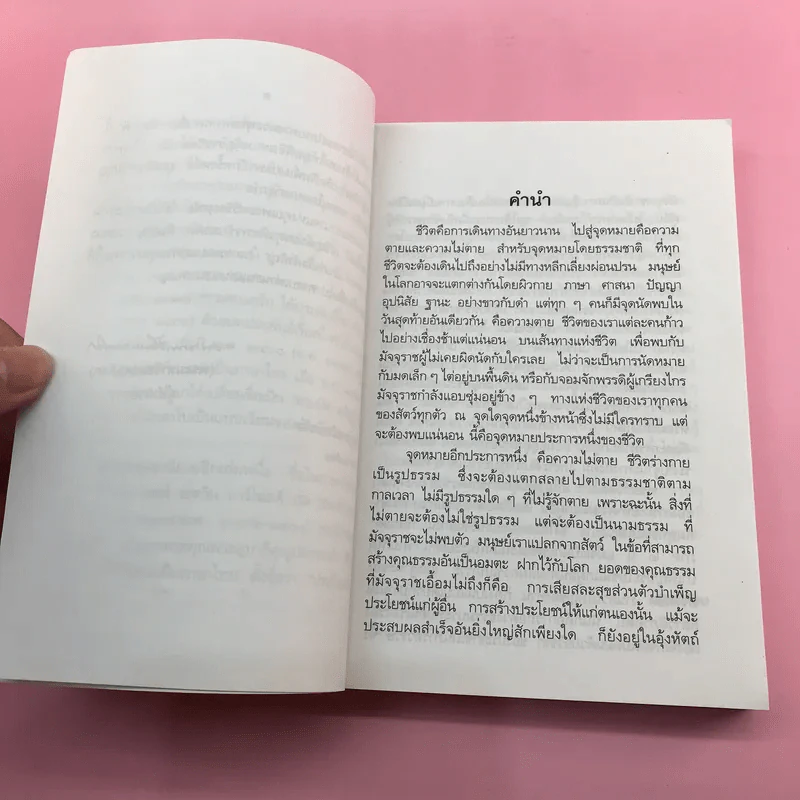 คำนำ
ชีวิตคือการเดินทางอันยาวนาน ไปสู่จุดหมายคือความ
ตายและความไม่ตาย สำหรับจุดหมายโดยธรรมชาติ ที่ทุก
ชีวิตจะต้องเดินไปถึงอย่างไม่มีทางหลีกเลี่ยงผ่อนปรน มนุษย์
ในโลกอาจจะแตกต่างกันโดยผิวกาย ภาษา ศาสนา ปัญญา
อุปนิสัย ฐานะ อย่างขาวกับดำ แต่ทุก ๆ คนก็มีจุดนัดพบใน
วันสุดท้ายอันเดียวกัน คือความตาย ชีวิตของเราแต่ละคนก้าว
ไปอย่างเชื่องช้าแต่แน่นอน บนเส้นทางแห่งชีวิต เพื่อพบกับ
มัจจุราชผู้ไม่เคยผิดนัดกับใครเลย ไม่ว่าจะเป็นการนัดหมาย
กับมดเล็ก ๆ ไต่อยู่บนพื้นดิน หรือกับจอมจักพรรดิผู้เกรียงไกร
มัจจุราชกำลังแอบซุ่มอยู่ข้าง ๆ ทางแห่งชีวิตของเราทุกคน
ของสัตว์ทุกตัว ณ จุดใดจุดหนึ่งข้างหน้าซึ่งไม่มีใครทราบ แต่
จะต้องพบแน่นอน นี้คือจุดหมายประการหนึ่งของชีวิต
จุดหมายอีกประการหนึ่ง คือความไม่ตาย ชีวิตร่างกาย
เป็นรูปธรรม ซึ่งจะต้องแตกสลายไปตามธรรมชาติตาม
กาลเวลา ไม่มีรูปธรรมใด ๆ ที่ไม่รู้จักตาย เพราะฉะนั้น สิ่งที่
ไม่ตายจะต้องไม่ใช่รูปธรรม แต่จะต้องเป็นนามธรรม ที่
มัจจุราชจะไม่พบตัว มนุษย์เราแปลกจากสัตว์ ในข้อที่สามารถ
สร้างคุณธรรมอันเป็นอมตะ ฝากไว้กับโลก ยอดของคุณธรรม
ที่มัจจุราชเอื้อมไม่ถึงก็คือ การเสียสละสุขส่วนตัวบำเพ็ญ
ประโยชน์แก่ผู้อื่น การสร้างประโยชน์ให้แก่ตนเองนั้น แม้จะ
ประสบผลสำเร็จอันยิ่งใหญ่สักเพียงใด ก็ยังอยู่ในอุ้งหัตถ์